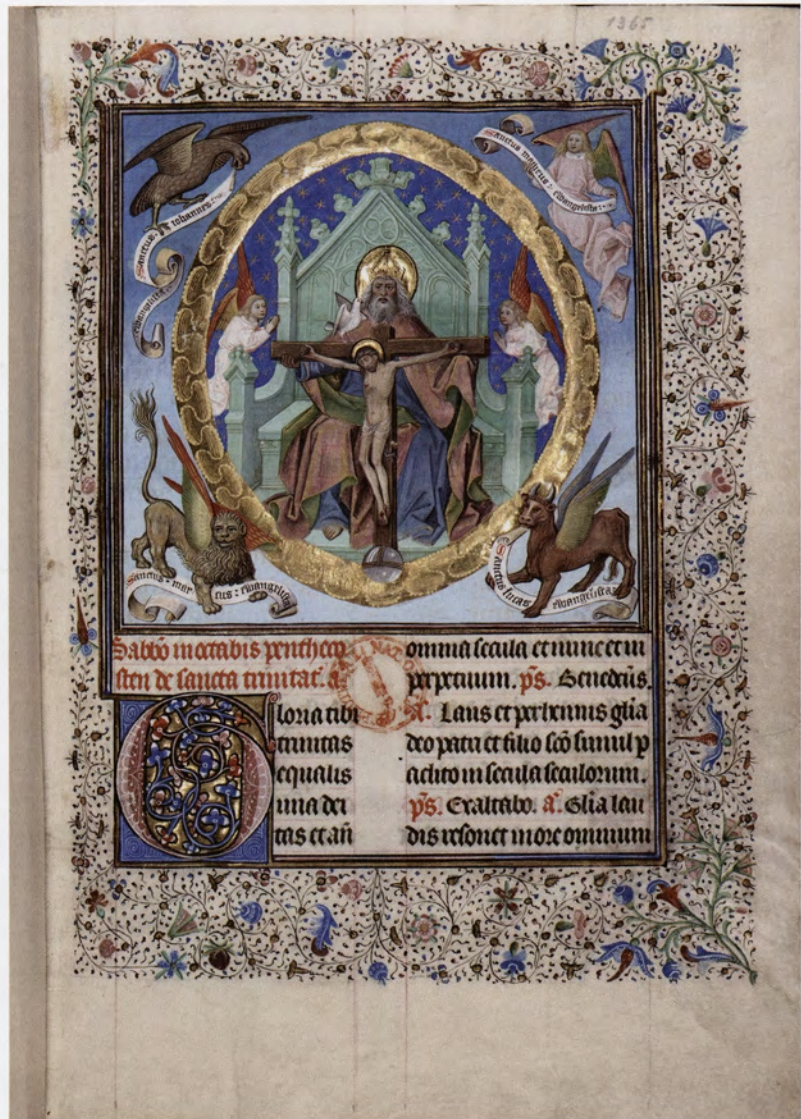 1365
Sanctus iohannes
ewangelista
Sanctus matheus: ewangelista:
Sanctus: mar
cus: ewangelista
Sanctus lucas ewangelista
Sabbō in octabis penthecō
sten de sancta trinitat. a
Gloria tibi
trinitas
equalis
una dei
tas et an̄
omnia secula et nunc et in
perpetuum. p̄s. Benedc̄us.
a. Laus et perhennis gl̄ia
deo patri et filio sc̄o simul p
aclito in secula seculorum.
p̄s. Exaltabo. a. Gl̄ia lau
dis resonet in ore omnium